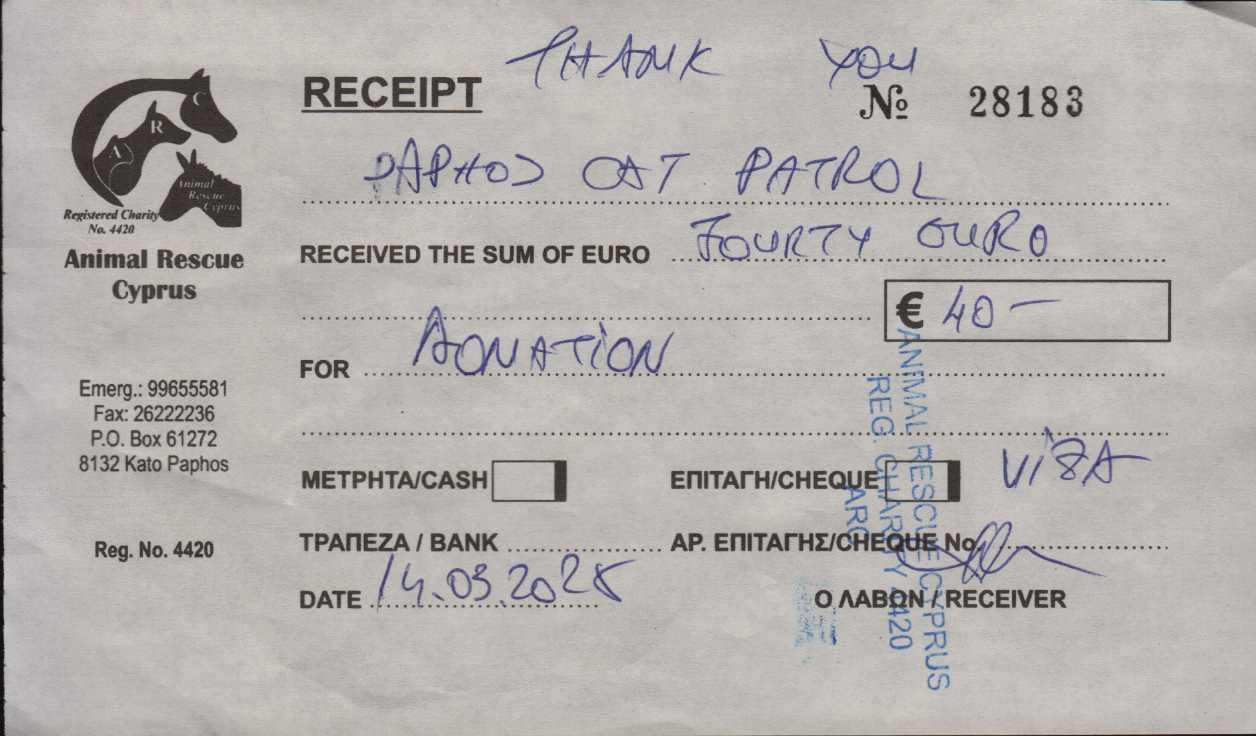 THANK YOU
RECEIPT
№ 28183
A R C
Animal
Rescue
Cyprus
Registered Charity
No. 4420
Animal Rescue
Cyprus
PAPHOS CAT PATROL
RECEIVED THE SUM OF EURO FOURTY EURO
€ 40 —
FOR DONATION
Emerg.: 99655581
Fax: 26222236
P.O. Box 61272
8132 Kato Paphos
ΜΕΤΡΗΤΑ/CASH ΕΠΙΤΑΓΗ/CHEQUE VISA
Reg. No. 4420
ΤΡΑΠΕΖΑ / BANK ΑΡ. ΕΠΙΤΑΓΗΣ/CHEQUE No
DATE 14.03.2025
Ο ΛΑΒΩΝ / RECEIVER
ANIMAL RESCUE CYPRUS
REG. CHARITY 4420
ARC